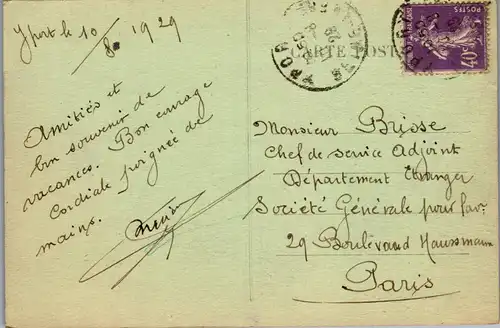 Yport le 10/8 1929
Amitiés et
bon souvenir de
vacances. Bon courage
Cordiale poignée de
mains.
CARTE POSTALE
YPORT
POSTES
40c
Monsieur Brisse
Chef de service Adjoint
Département Etranger
Société Générale pour fav.
29 Boulevard Haussmann
Paris